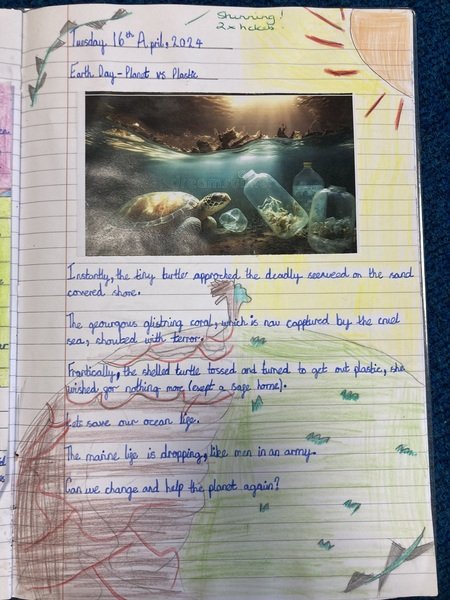 Stunning!
2x hcks
Tuesday 16th April, 2024
Earth Day - Planet vs Plastic
dreams
Instantly, the tiny turtle approcked the deadly seeweed on the sand
covered shore.
The geourgous glistning coral, which is now capptured by the cruel
sea, shouted with terror.
Frantically, the shelled turtle tossed and turned to get out plastic, she
wished for nothing more (exept a safe home).
Lets save our ocean life.
The marine life is dropping, like men in an army.
Can we change and help the planet again?